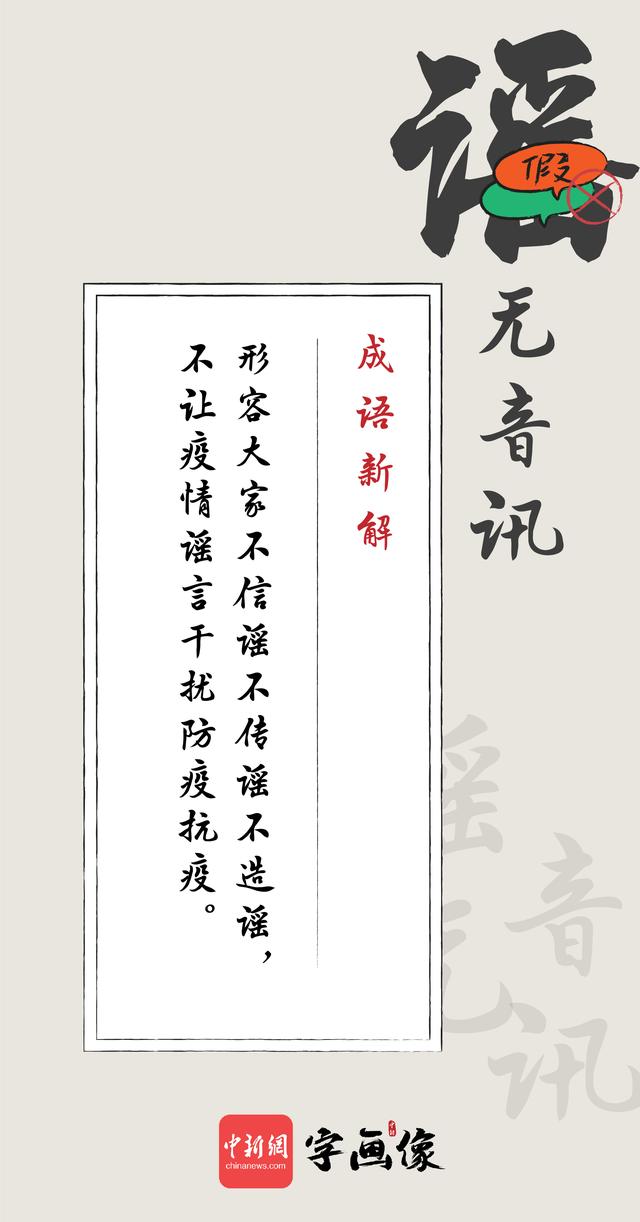 谣无音讯
假
成语新解
形容大家不信谣不传谣不造谣，
不让疫情谣言干扰防疫抗疫。
谣无音讯
中新網
chinanews.com
字画像